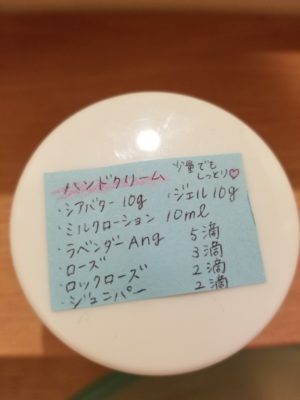 ハンドクリーム 少量でもしっとり♡
・シアバター 10g ・ジェル 10g
・ミルクローション 10ml
・ラベンダー Ang 5滴
・ローズ 3滴
・ロックローズ 2滴
・ジュニパー 2滴